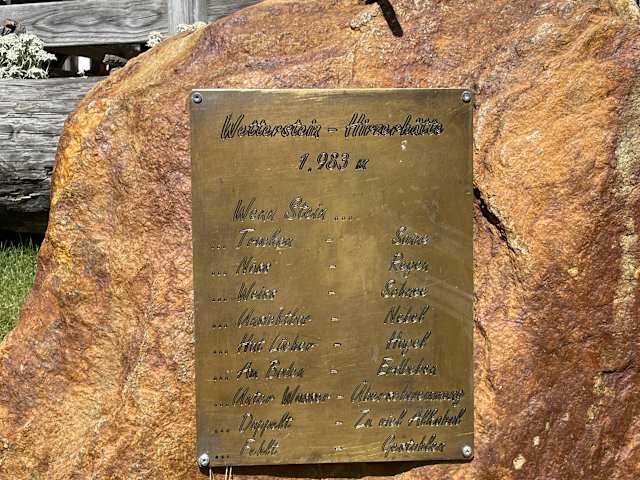 Wetterstein - Hirzerhütte
1.983 m
Wenn Stein ...
... Trocken - Sonne
... Nass - Regen
... Weiss - Schnee
... Unsichtbar - Nebel
... Hat Löcher - Hagel
... Am Beben - Erdbeben
... Unter Wasser - Überschwemmung
... Doppelt - Zu viel Alkohol
... Fehlt - Gestohlen